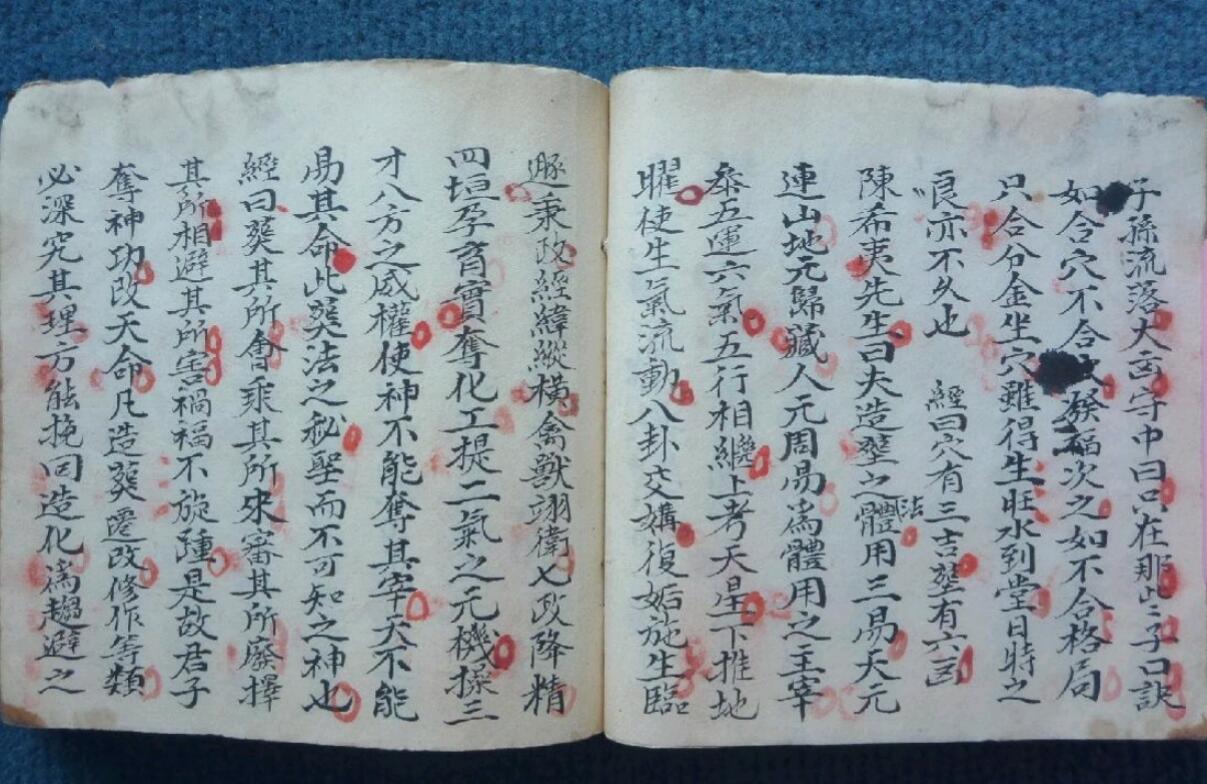 子孫流落大凶守中曰口在那此二子口訣
如合穴不合 發福次之如不合格局
只合分金坐穴雖得生旺水到堂日時之
良亦不久也 經曰穴有三吉塟有六凶
陳希夷先生曰夫造塟之體法用三易天元
連山地元歸藏人元周易爲體用之主宰
泰五運六氣五行相繼上考天星下推地
曜使生氣流動八卦交媾復姤施生臨
遯秉政經緯縱橫禽獸翊衛七政降精
四垣孕育實奪化工提二氣之元機操三
才八方之威權使神不能奪其宰天不能
易其命此葬法之秘聖而不可知之神也
經曰葬其所會乘其所來審其所廢擇
其所相避其所害禍福不旋踵是故君子
奪神功改天命凡造葬遷改修作等類
必深究其理方能挽回造化爲趨避之